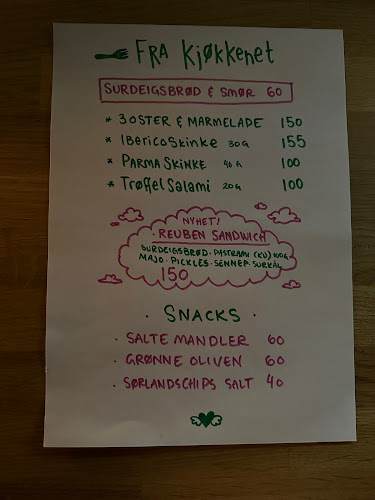 FRA Kjøkkenet
SURDEIGSBRØD & SMØR 60
* 3 OSTER & MARMELADE 150
* IBericoSkinke 30G 155
* PARMA SKINKE 40G 100
* Trøffel Salami 20G 100
NYHET!
· REUBEN SANDWICH
SURDEIGSBRØD · PASTRAMI (KU) 100G
MAJO · PICKLES · SENNEP · SURKÅL
150
· SNACKS ·
· SALTE MANDLER 60
· GRØNNE OLIVEN 60
· SØRLANDSCHIPS SALT 40